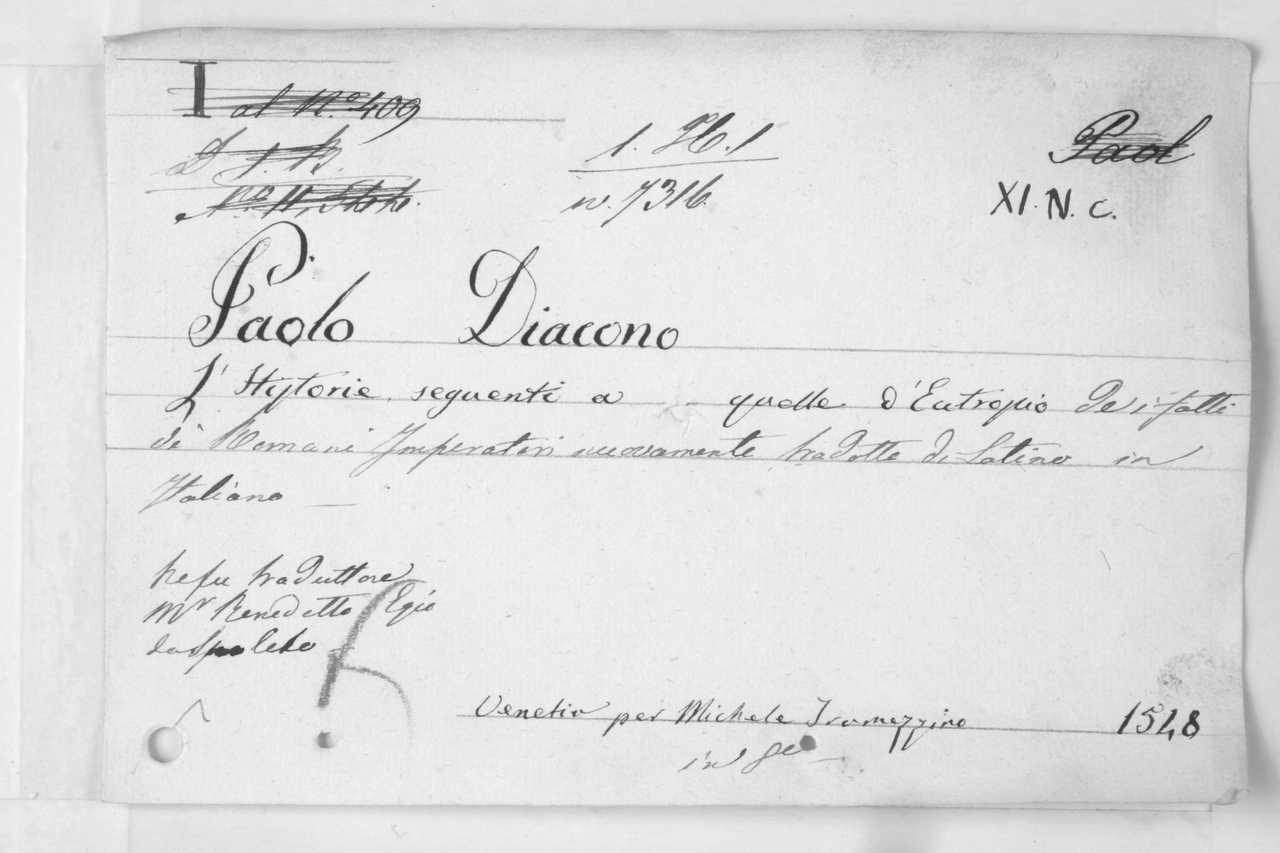 I al N.o 409
1. H. 1
n. 7316
Paol
XI. N. c.
Paolo Diacono
L'Hystorie seguenti a quelle d'Eutropio de i fatti
di Romani Imperatori nuovamente tradotte di Latino in
Italiano
traduttore
Mr Benedetto Egio
da Spoleto
Venetia per Michele Tramezzino 1548
in 8o